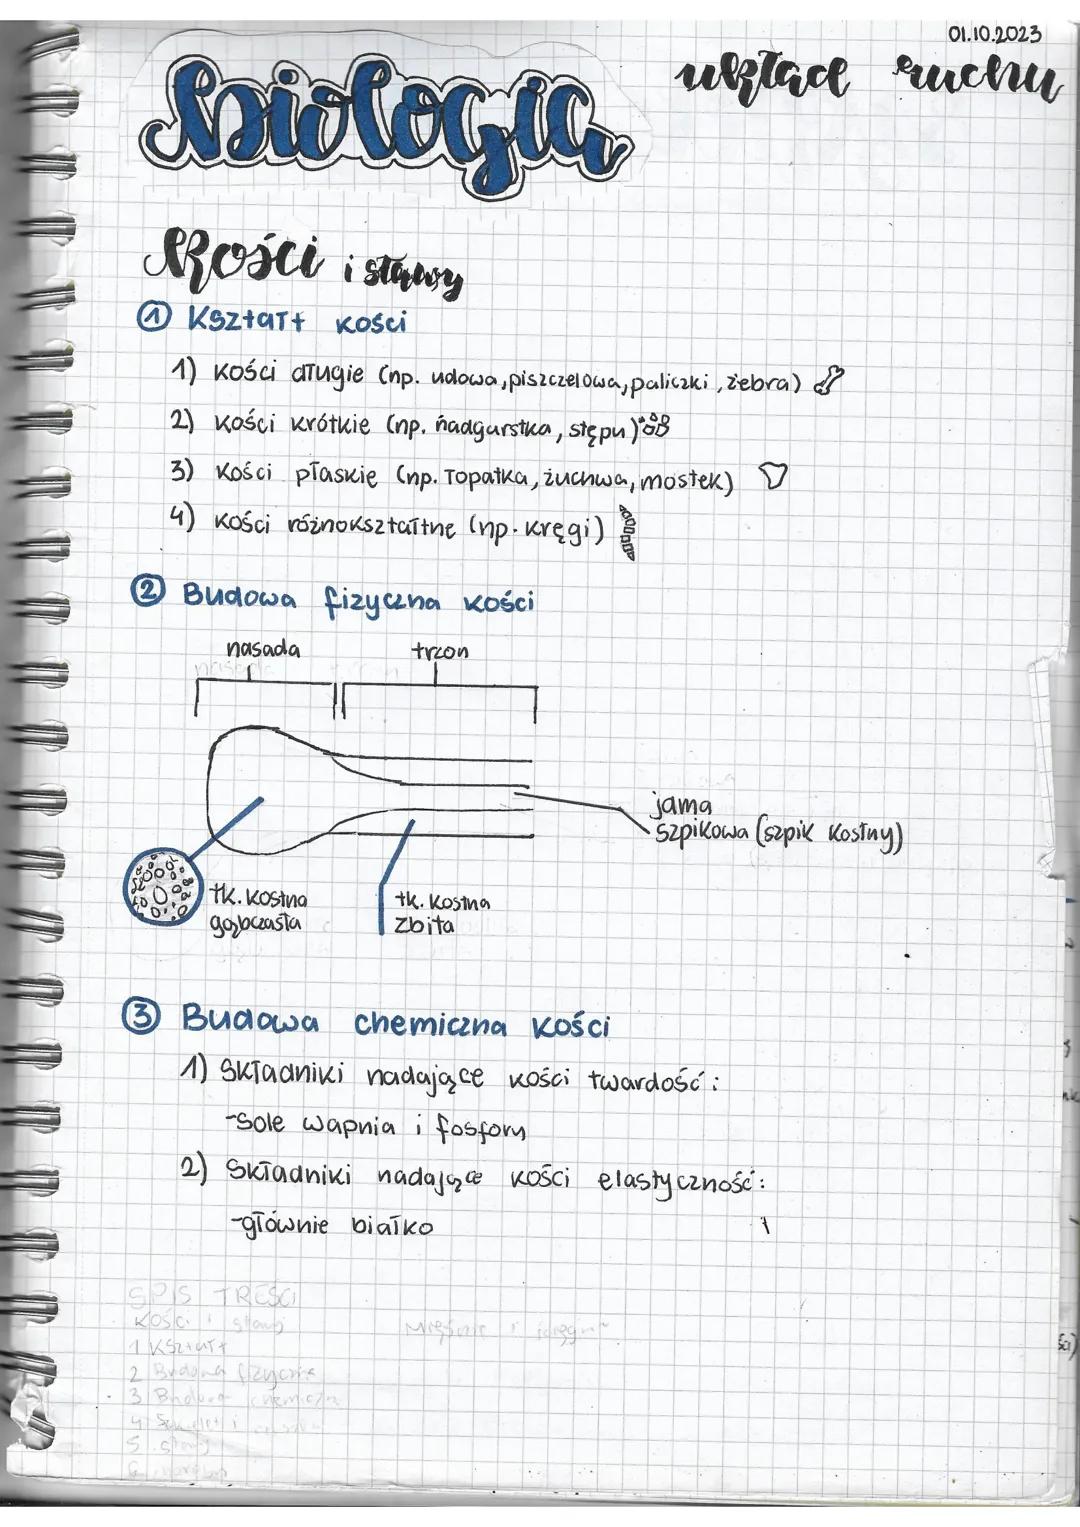 01.10.2023
Biologia
układ ruchu
Kości i stawy
① Kształt kości
1) kości długie (np. udowa, piszczelowa, paliczki, żebra)
2) kości krótkie (np. nadgarstka, stępu)
3) kości płaskie (np. łopatka, żuchwa, mostek)
4) kości różnokształtne (np. kręgi)
② Budowa fizyczna kości
nasada
trzon
jama
szpikowa (szpik kostny)
tk. kostna
gąbczasta
tk. kostna
zbita
③ Budowa chemiczna kości
1) Składniki nadające kości twardość:
-sole wapnia i fosforu
2) Składniki nadające kości elastyczność:
-głównie białko
SPIS TREŚCI
Kości i stawy
1 Kształt
2 Budowa fizyczna
3 Budowa chemiczna
4
5 stawy
6